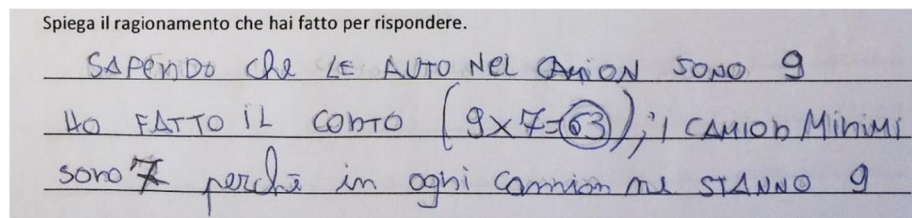 Spiega il ragionamento che hai fatto per rispondere.
SAPENDO che LE AUTO Nel CAMION SONO 9
HO FATTO IL CONTO (9x7=63), i CAMION MiNiMi
sono 7 perché in ogni camion ne STANNO 9